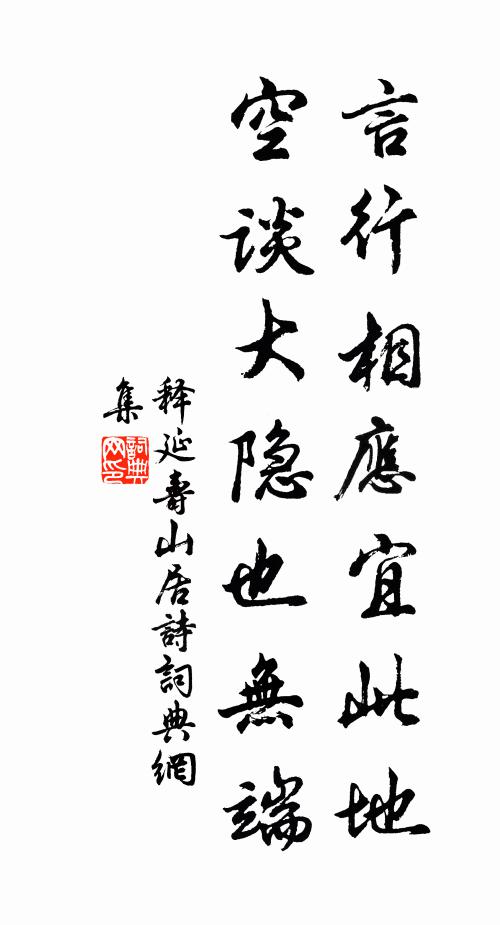 言行相應宜此地
空谈大隐也無端
释延壽山居詩詞典網
集
詞典網印